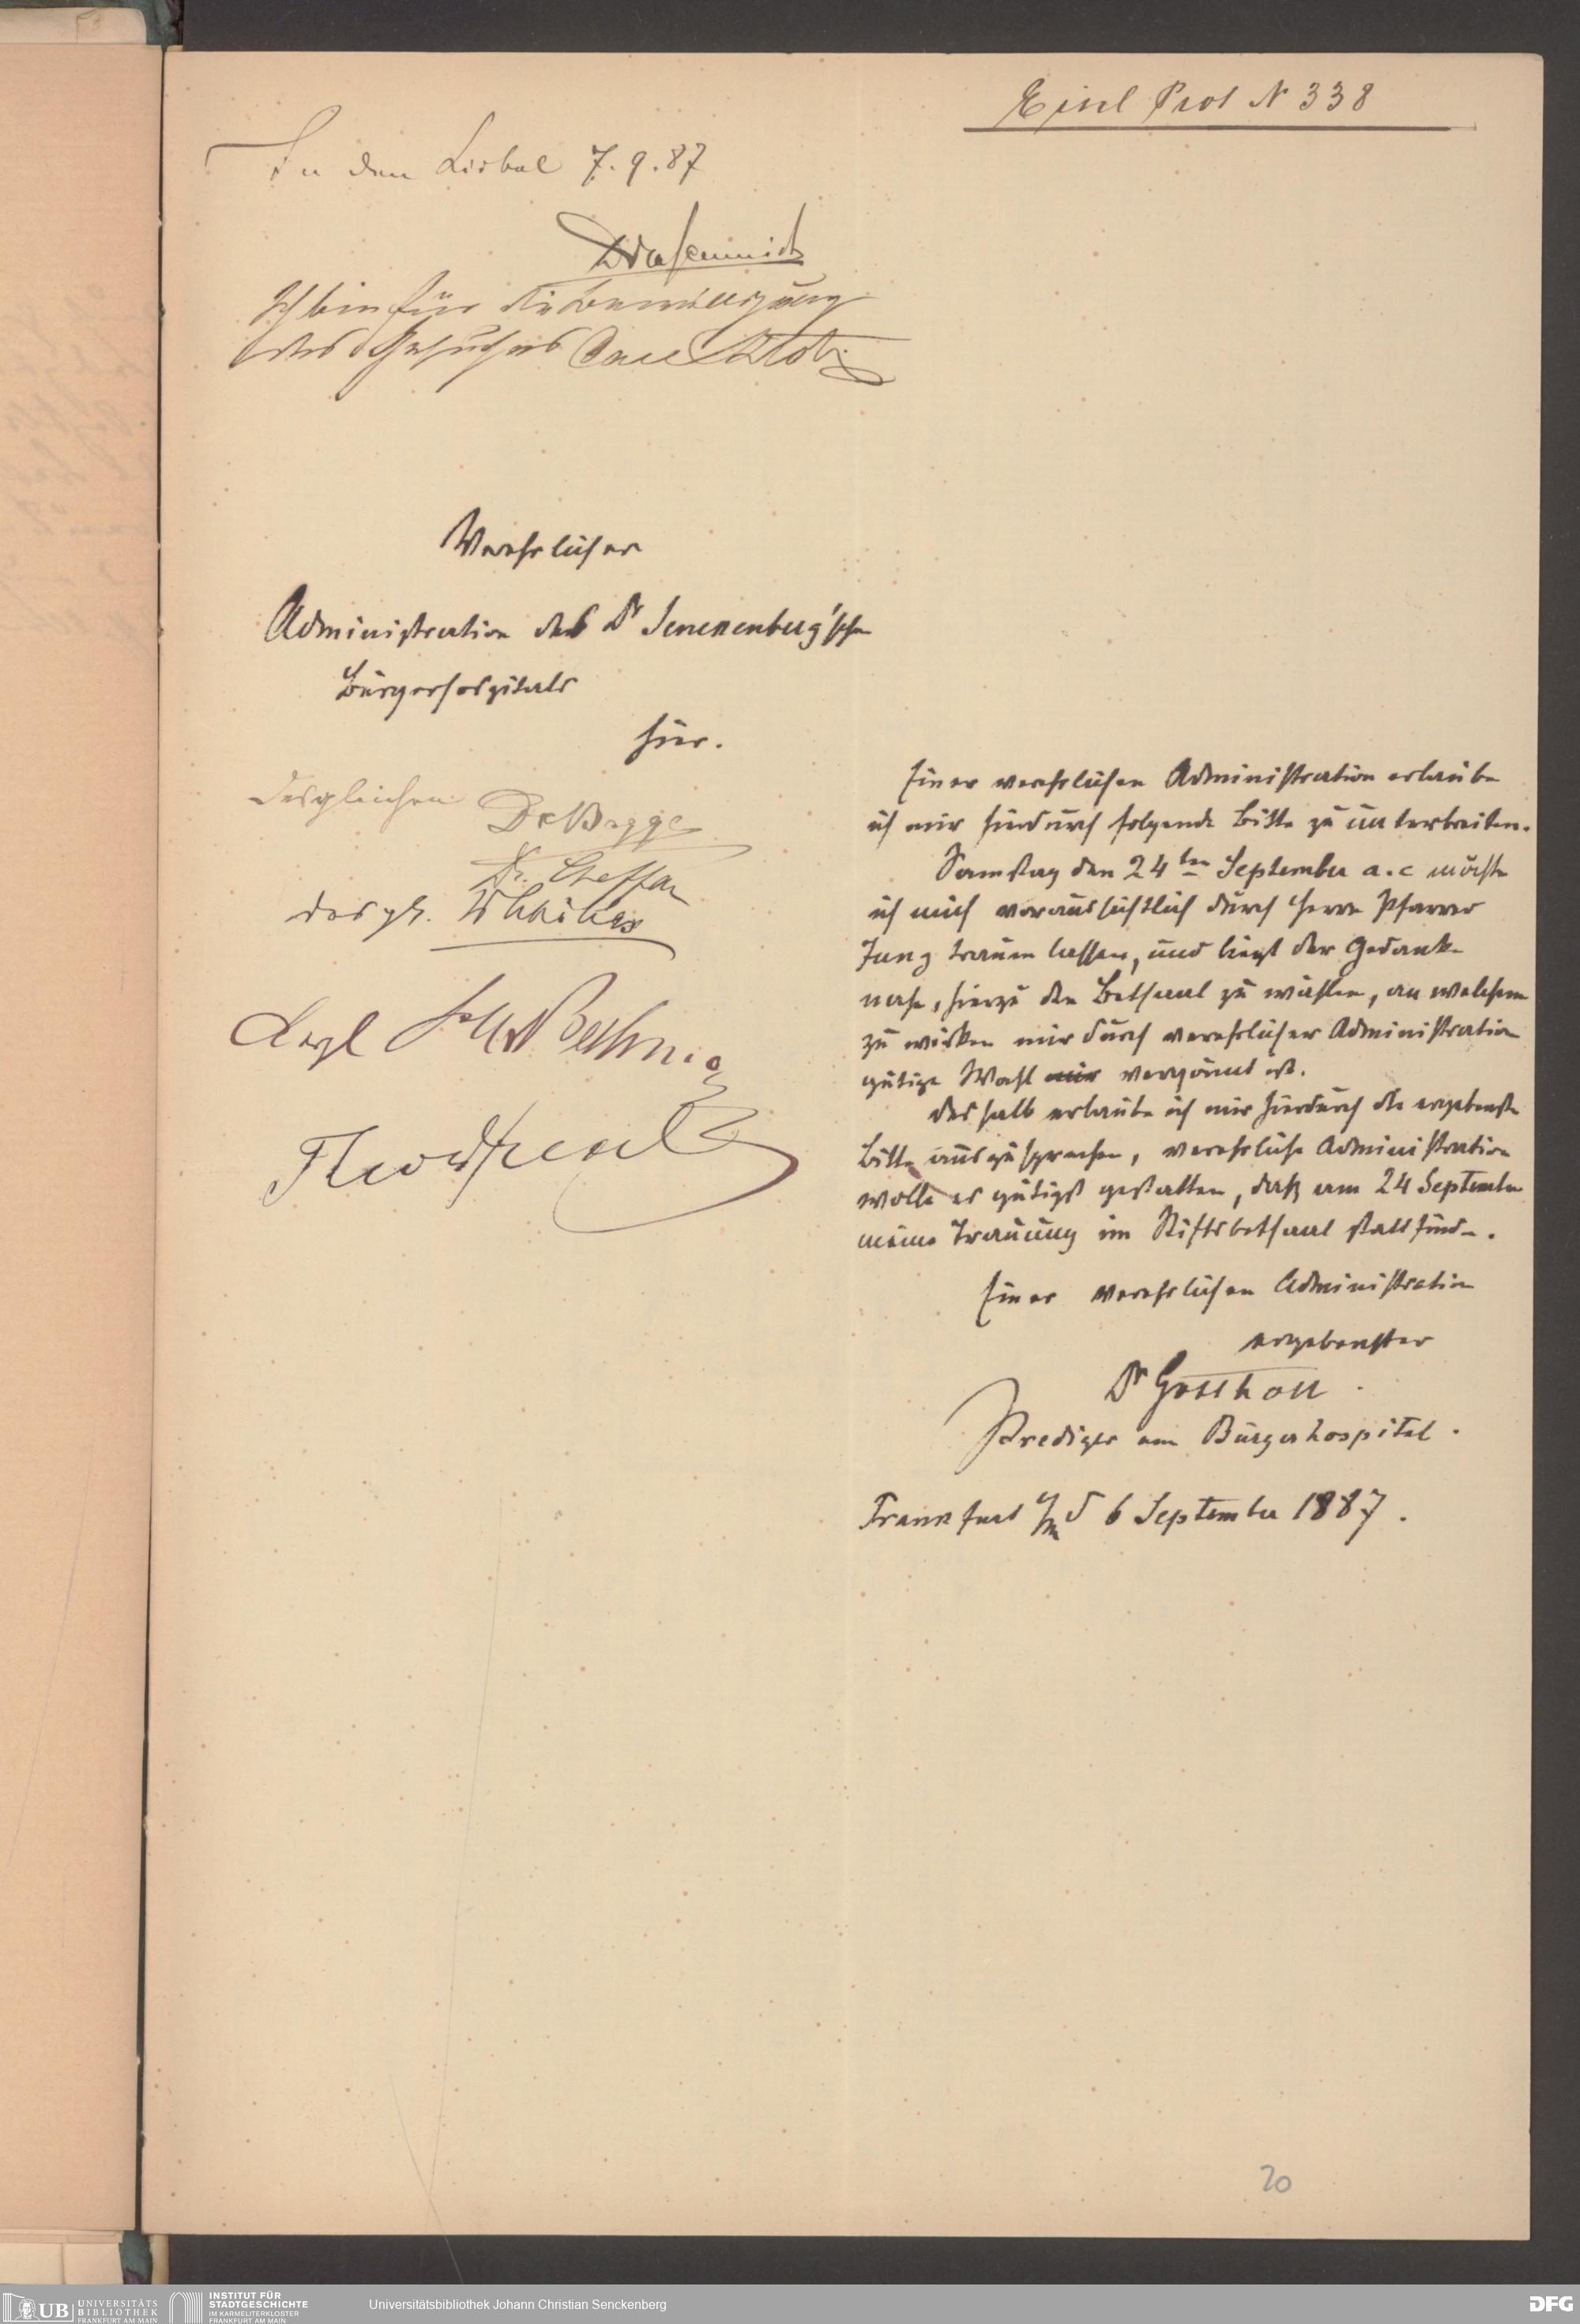 Einl Prot N 338
In den Lisbal 7. 9. 87
Ich bin für die Bewilligung
des Gesuches Carl Klotz
Verehrlicher
Administration des Dr Senckenberg'schen
Bürgerhospitals
hier.
desgleichen Dr Bagge
desgl.
desgl
Einer verehrlichen Administration erlaube
ich mir hierdurch folgende Bitte zu unterbreiten.
Samstag den 24ten September a. c möchte
ich mich voraussichtlich durch Herrn Pfarrer
Jung trauen lassen, und liegt der Gedanke
nahe, hierzu den Betsaal zu wählen, an welchem
zu wirken mir durch verehrlicher Administration
gütige Wahl mir vergönnt ist.
Deshalb erlaube ich mir hierdurch die ergebenste
Bitte auszusprechen, verehrliche Administration
wolle es gütigst gestatten, daß am 24 September
meine Trauung im Stiftsbetsaal stattfinde.
Einer verehrlichen Administration
ergebenster
Dr Gotthold
Prediger am Bürgerhospital.
Frankfurt a/M d 6 September 1887.
20
UB UNIVERSITÄTS
BIBLIOTHEK
FRANKFURT AM MAIN
INSTITUT FÜR
STADTGESCHICHTE
IM KARMELITERKLOSTER
FRANKFURT AM MAIN
Universitätsbibliothek Johann Christian Senckenberg
DFG